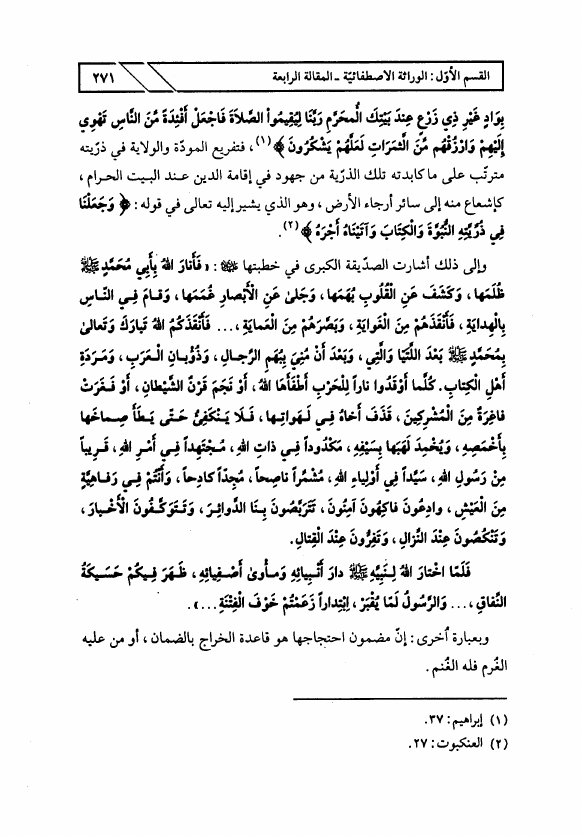 القسم الأوّل : الوراثة الاصطفائيّة ـ المقالة الرابعة
٢٧١
بِوَادٍ غَيْرِ ذِي زَرْعٍ عِندَ بَيْتِكَ الْمُحَرَّمِ رَبَّنَا لِيُقِيمُواْ الصَّلاَةَ فَاجْعَلْ أَفْئِدَةً مِّنَ النَّاسِ تَهْوِي
إِلَيْهِمْ وَارْزُقْهُم مِّنَ الثَّمَرَاتِ لَعَلَّهُمْ يَشْكُرُونَ ﴾(١) ، فتفريع المودّة والولاية في ذرّيته
مترتّب على ما كابدته تلك الذرّية من جهود في إقامة الدين عند البيت الحرام ،
كإشعاع منه إلى سائر أرجاء الأرض ، وهو الذي يشير إليه تعالى في قوله : ﴿ وَجَعَلْنَا
فِي ذُرِّيَّتِهِ النُّبُوَّةَ وَالْكِتَابَ وَآتَيْنَاهُ أَجْرَهُ ﴾(٢).
وإلى ذلك أشارت الصدّيقة الكبرى في خطبتها ﷺ : « فَأَنارَ اللهُ بِأَبِي مُحَمَّدٍ ﷺ
ظُلَمَها ، وَكَشَفَ عَنِ الْقُلُوبِ بُهَمَها ، وَجَلىٰ عَنِ الْأَبْصارِ غُمَمَها ، وَقامَ فِي النّاسِ
بِالْهِدايَةِ ، فَأَنْقَذَهُمْ مِنَ الْغَوايَةِ ، وَبَصَّرَهُمْ مِنَ الْعَمايَةِ ،... فَأَنْقَذَكُمُ اللهُ تَبارَكَ وَتَعالىٰ
بِمُحَمَّدٍ ﷺ بَعْدَ اللَّتَيّا وَالَّتِي ، وَبَعْدَ أَنْ مُنِيَ بِبُهَمِ الرِّجالِ ، وَذُؤْبانِ الْعَرَبِ ، وَمَرَدَةِ
أَهْلِ الْكِتابِ. كُلَّما أَوْقَدُوا ناراً لِلْحَرْبِ أَطْفَأَها اللهُ ، أَوْ نَجَمَ قَرْنُ الشَّيْطانِ ، أَوْ فَغَرَتْ
فاغِرَةٌ مِنَ الْمُشْرِكِينَ ، قَذَفَ أَخاهُ فِي لَهَواتِها ، فَلا يَنْكَفِئُ حَتّى يَطَأَ صِماخَها
بِأَخْمَصِهِ ، وَيُخْمِدَ لَهَبَها بِسَيْفِهِ ، مَكْدُوداً فِي ذاتِ اللهِ ، مُجْتَهِداً فِي أَمْرِ اللهِ ، قَرِيباً
مِنْ رَسُولِ اللهِ ، سَيِّداً فِي أَوْلِياءِ اللهِ ، مُشَمِّراً ناصِحاً ، مُجِدّاً كادِحاً ، وَأَنْتُمْ فِي رَفاهِيَّةٍ
مِنَ الْعَيْشِ ، وادِعُونَ فاكِهُونَ آمِنُونَ ، تَتَرَبَّصُونَ بِنا الدَّوائِرَ ، وَتَتَوَكَّفُونَ الْأَخْبارَ ،
وَتَنْكُصُونَ عِنْدَ النِّزالِ ، وَتَفِرُّونَ عِنْدَ الْقِتالِ.
فَلَمّا اخْتارَ اللهُ لِنَبِيِّهِ ﷺ دارَ أَنْبِيائِهِ وَمَأْوىٰ أَصْفِيائِهِ ، ظَهَرَ فِيكُمْ حَسِيكَةُ
النِّفاقِ ،... وَالرَّسُولُ لَمّا يُقْبَرْ ، اِبْتِداراً زَعَمْتُمْ خَوْفَ الْفِتْنَةِ ... ».
وبعبارة اُخرى : إنّ مضمون احتجاجها هو قاعدة الخراج بالضمان ، أو من عليه
الغُرم فله الغُنم.
(١) إبراهيم : ٣٧.
(٢) العنكبوت : ٢٧.